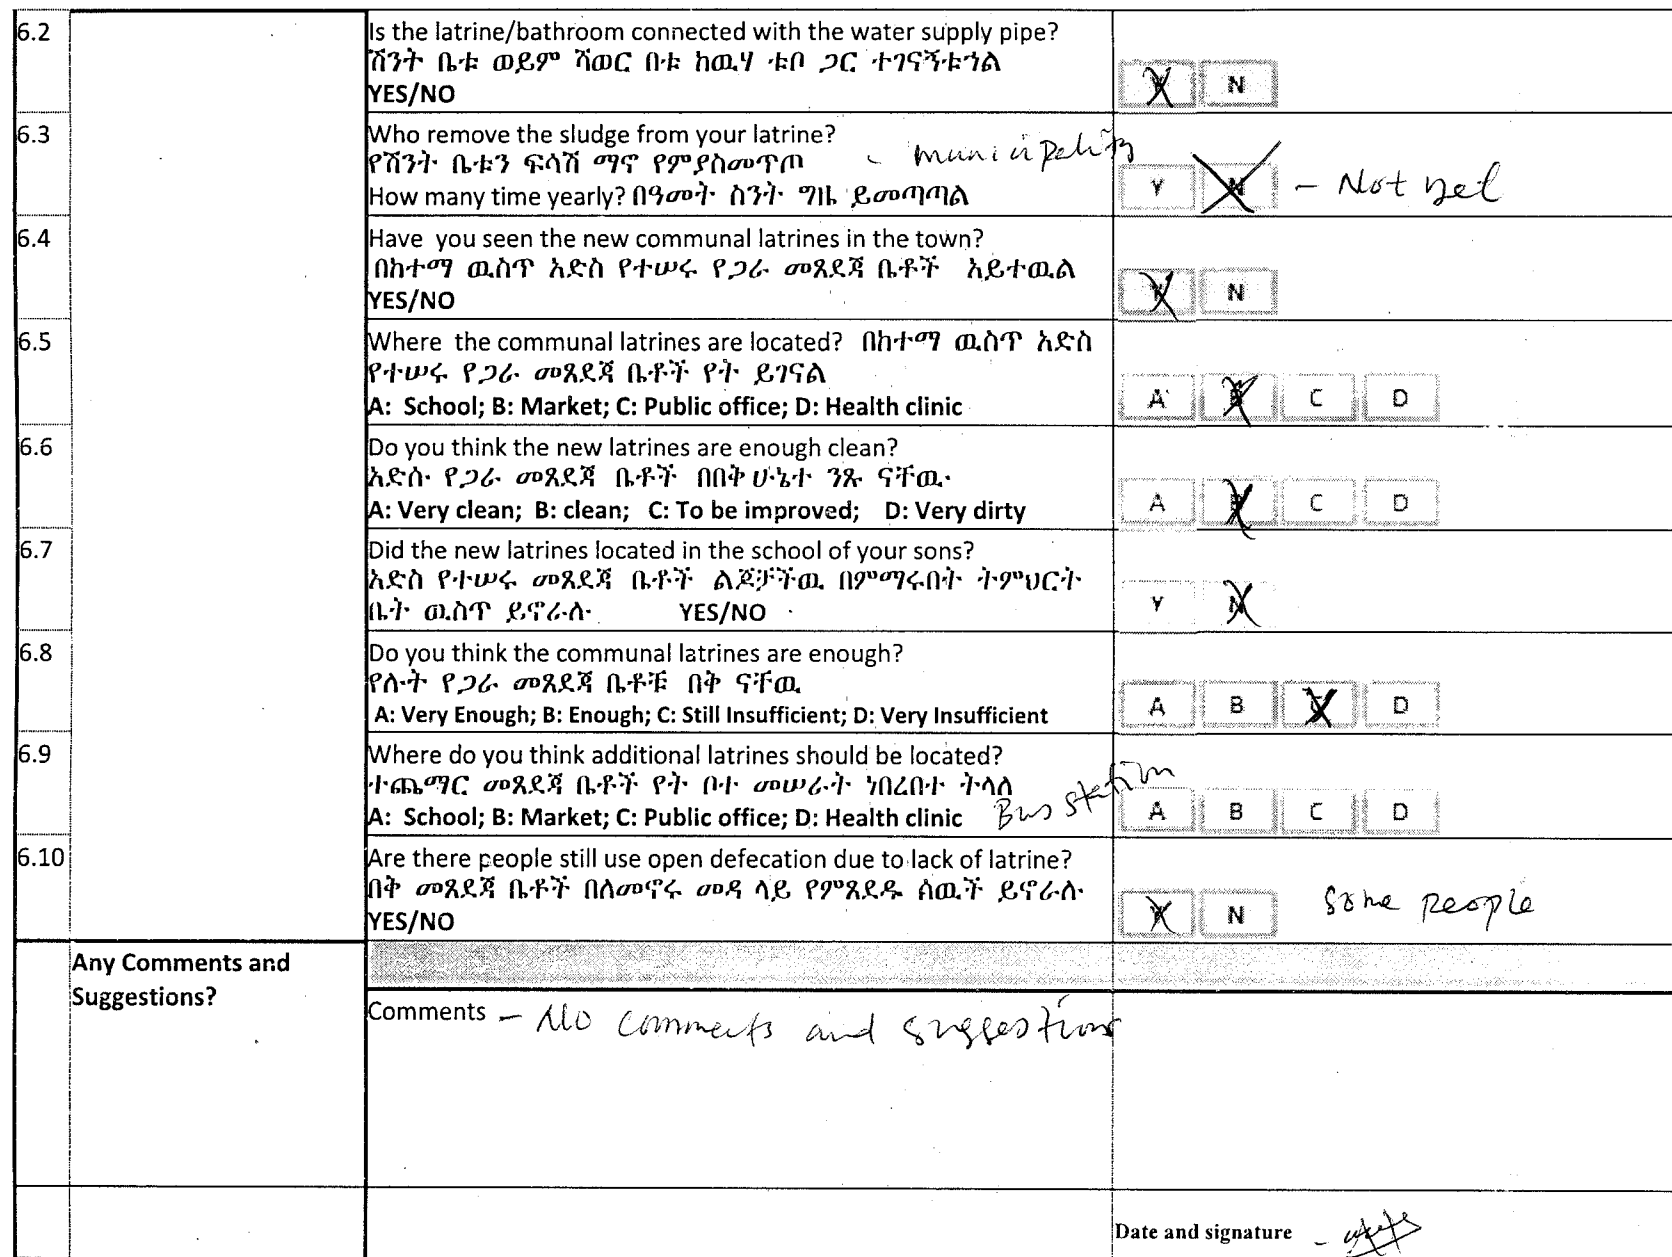 6.2
Is the latrine/bathroom connected with the water supply pipe?
ሽንት ቤቱ ወይም ሻወር በቱ ከዉሃ ቱቦ ጋር ተገናኝቱኅል
YES/NO
Y N
6.3
Who remove the sludge from your latrine?
የሽንት ቤቱን ፍሳሽ ማኖ የምያስመጥጦ - municipality
How many time yearly? በዓመት ስንት ግዜ ይመጣጣል
Y N - Not yet
6.4
Have you seen the new communal latrines in the town?
በከተማ ዉስጥ አድስ የተሠሩ የጋራ መጸደጃ ቤቶች አይተዉል
YES/NO
Y N
6.5
Where the communal latrines are located? በከተማ ዉስጥ አድስ
የተሠሩ የጋራ መጸደጃ ቤቶች የት ይገናል
A: School; B: Market; C: Public office; D: Health clinic
A B C D
6.6
Do you think the new latrines are enough clean?
አድሱ የጋራ መጸደጃ ቤቶች በበቅ ሁኔተ ንጹ ናቸዉ
A: Very clean; B: clean; C: To be improved; D: Very dirty
A B C D
6.7
Did the new latrines located in the school of your sons?
አድስ የተሠሩ መጸደጃ ቤቶች ልጆቻችዉ በምማሩበት ትምህርት
ቤት ዉስጥ ይኖራሉ YES/NO
Y N
6.8
Do you think the communal latrines are enough?
የሉት የጋራ መጸደጃ ቤቶቹ በቅ ናቸዉ
A: Very Enough; B: Enough; C: Still Insufficient; D: Very Insufficient
A B C D
6.9
Where do you think additional latrines should be located?
ተጨማር መጸደጃ ቤቶች የት ቦተ መሠራት ነበረበተ ትላለ
A: School; B: Market; C: Public office; D: Health clinic Bus station
A B C D
6.10
Are there people still use open defecation due to lack of latrine?
በቅ መጸደጃ ቤቶች በለመኖሩ መዳ ላይ የምጸደዱ ሰዉች ይኖራሉ
YES/NO
Y N some people
Any Comments and
Suggestions?
Comments - No comments and suggestions
Date and signature -